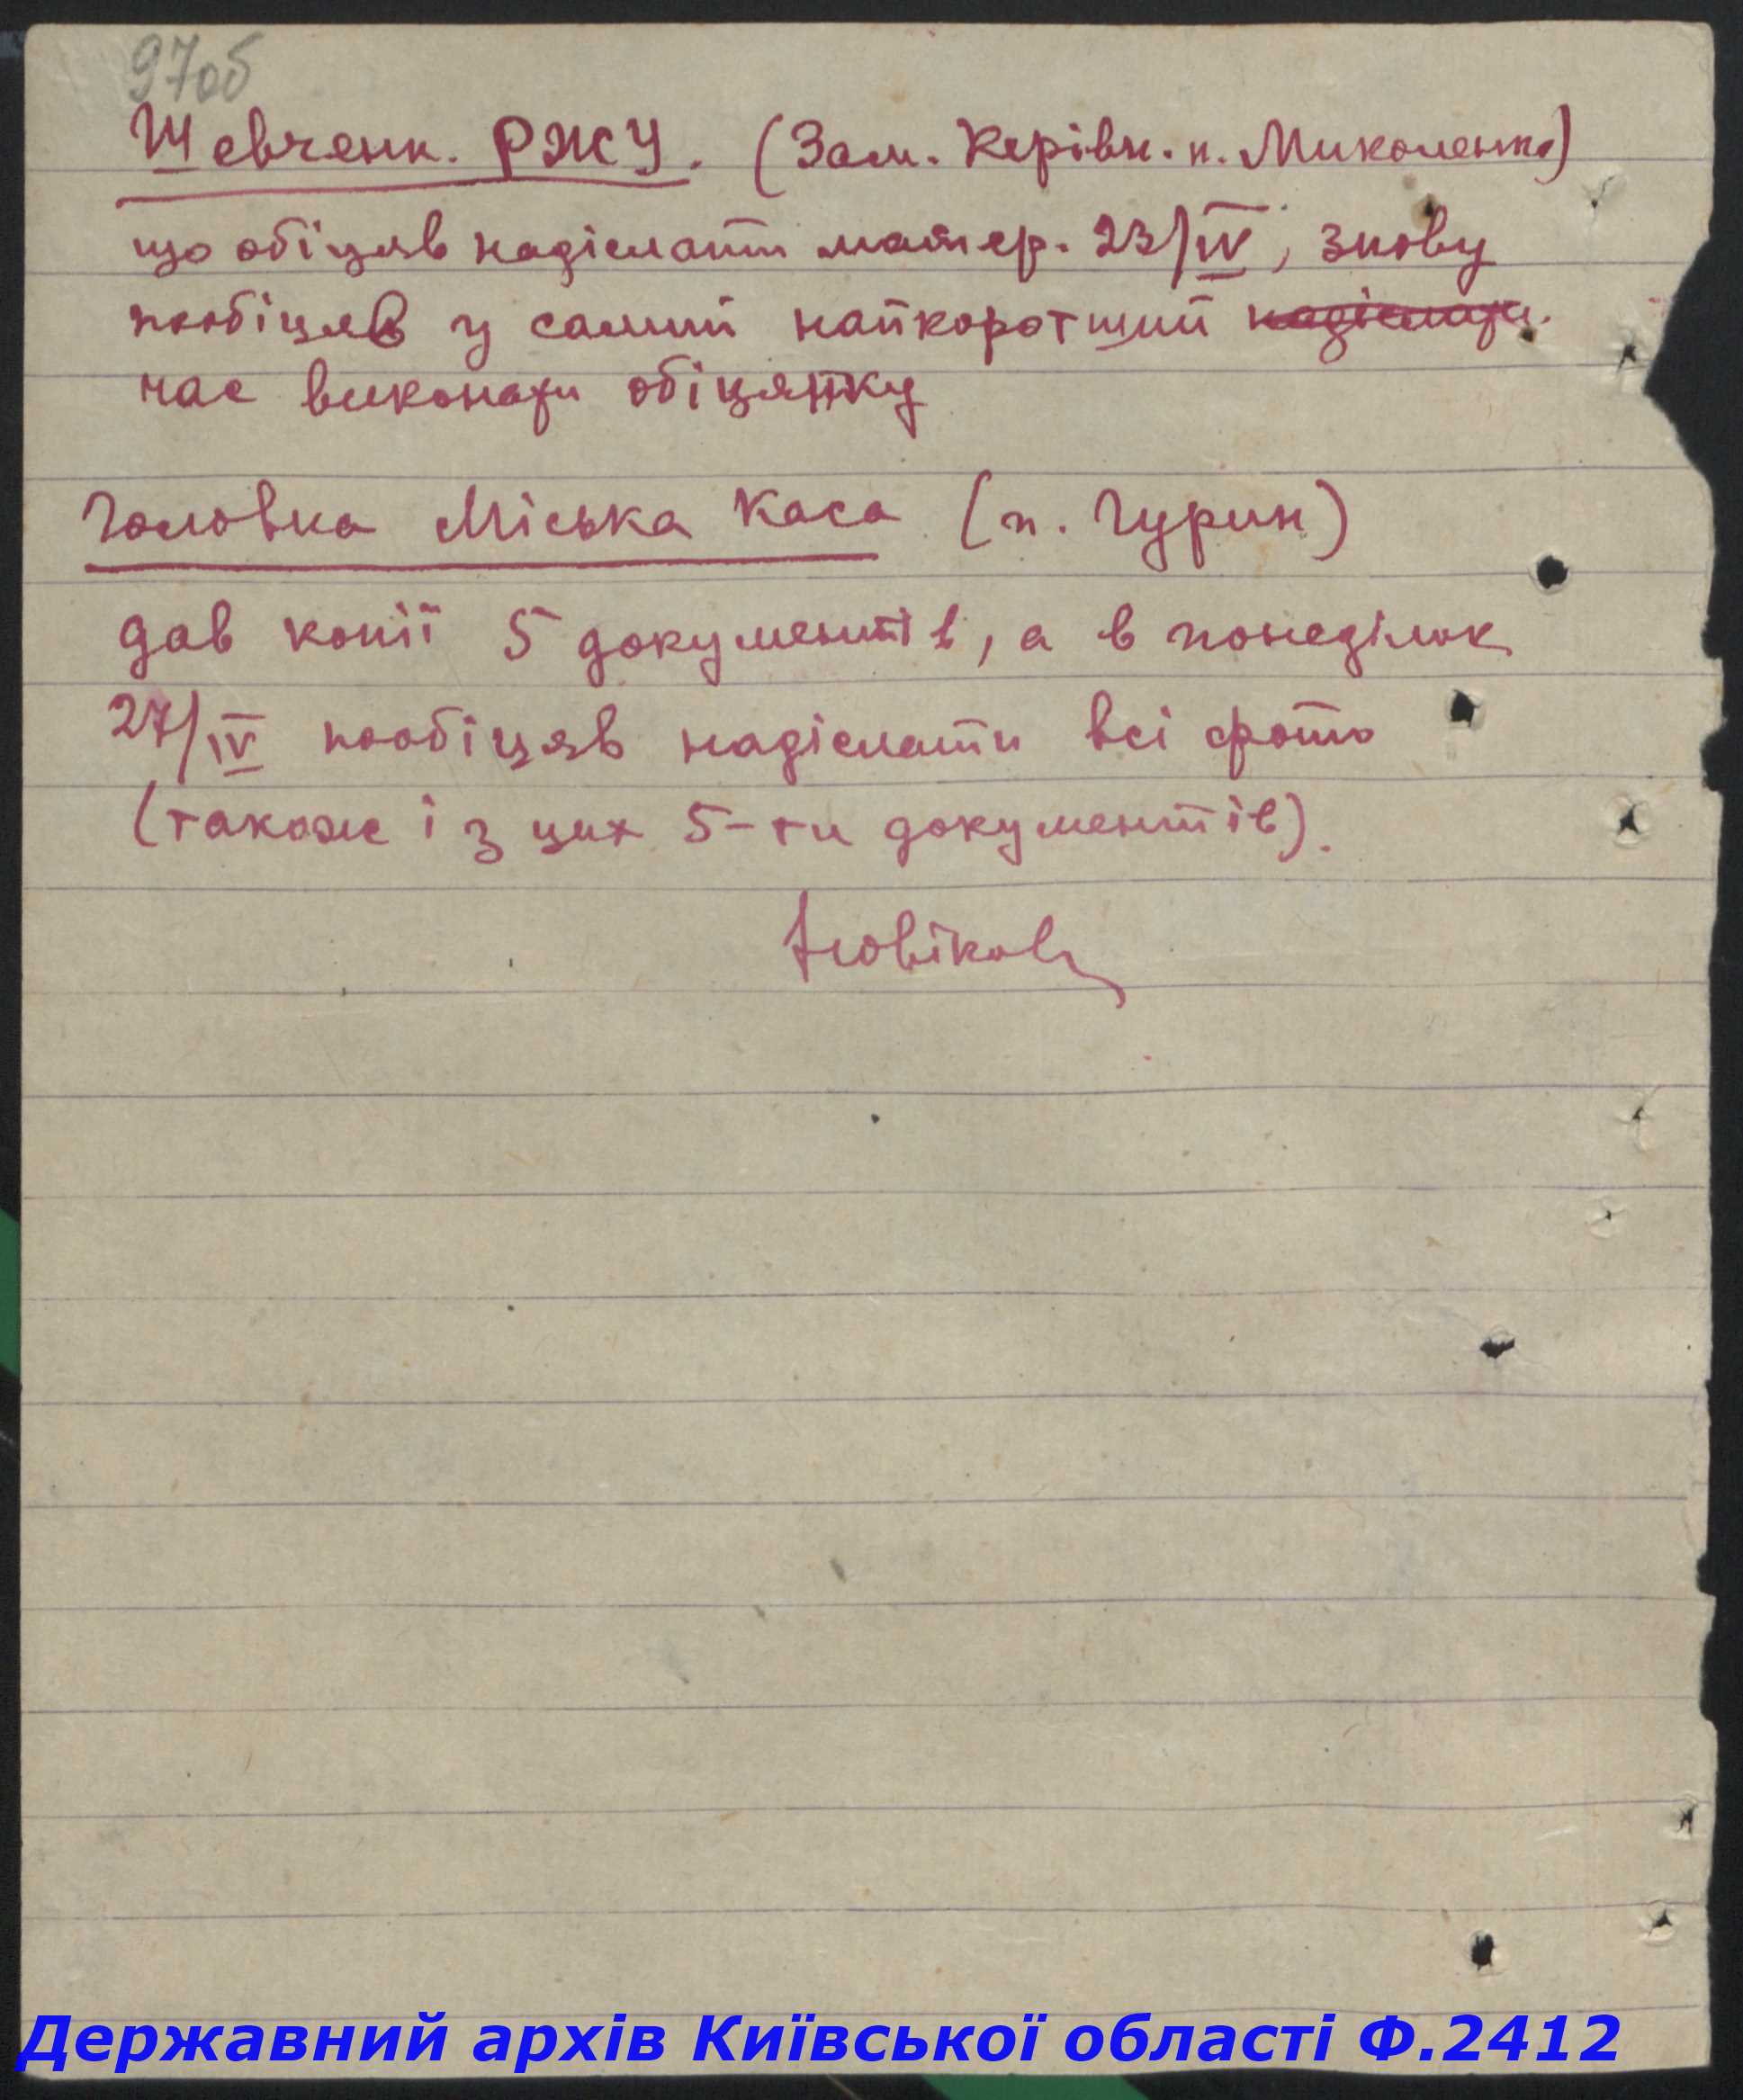 97об
Шевченк. РЖУ. (Зам. Керівн. п. Миколенко)
що обіцяв надіслати матер. 23/IV, знову
пообіцяв у самий найкоротший надіслати
час виконати обіцянку
Головна Міська Каса (п. Гурин)
дав копії 5 документів, а в понеділок
27/IV пообіцяв надіслати всі фото
(також і з цих 5-ти документів).
Новіков
Державний архів Київської області Ф.2412